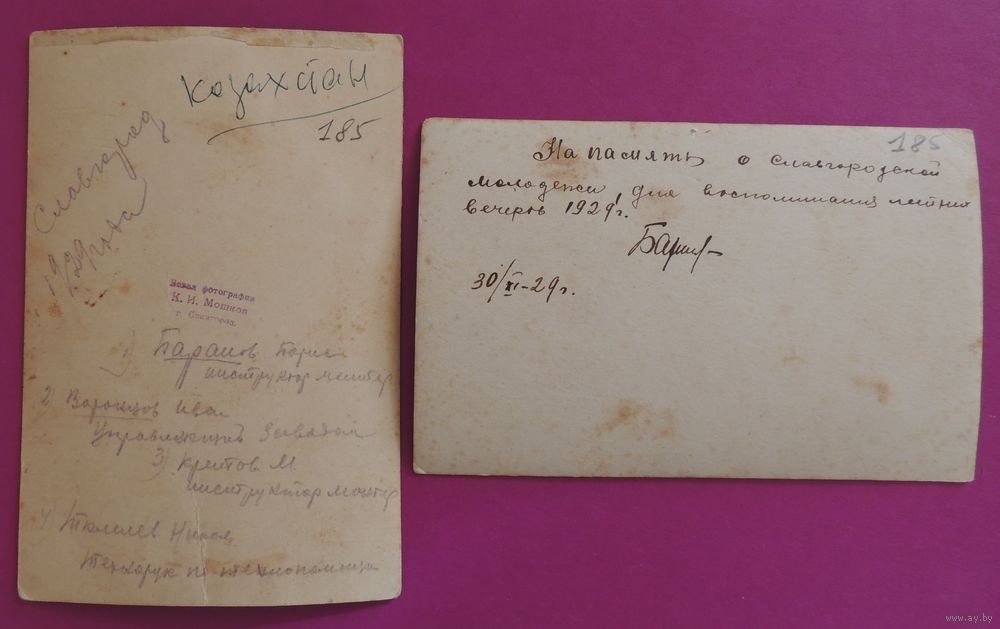 Казахстан
185
Славгород
1929 года
Новая фотография
К. И. Мошков
г. Славгород.
1) Баранов Борис
инструктор монтер
2) Воронцов Иван
Управляющий Заводом
3) М.
инструктор монтер
4)
по
185
На память о Славгородской
молодежи, для воспоминания летних
вечеров 1929 г.
30/XI-29 г.
www.ay.by